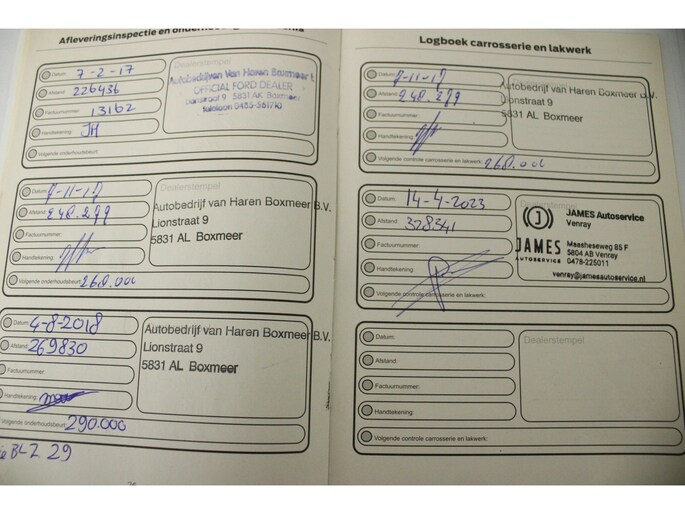 Afleveringsinspectie en
Datum: 7-2-17
Afstand: 226436
Factuurnummer: 13162
Handtekening: JH
Volgende onderhoudsbeurt:
Dealerstempel
Autobedrijven Van Haren Boxmeer
OFFICIAL FORD DEALER
Lionstraat 9 5831 AK Boxmeer
telefoon 0485-561710
Datum: 7-11-17
Afstand: 248.279
Factuurnummer:
Handtekening:
Volgende onderhoudsbeurt: 268.000
Dealerstempel
Autobedrijf van Haren Boxmeer B.V.
Lionstraat 9
5831 AL Boxmeer
Datum: 4-8-2018
Afstand: 269830
Factuurnummer:
Handtekening:
Volgende onderhoudsbeurt: 290.000
Autobedrijf van Haren Boxmeer B.V.
Lionstraat 9
5831 AL Boxmeer
BLZ 29
Logboek carrosserie en lakwerk
Datum: 7-11-17
Afstand: 248.279
Factuurnummer:
Handtekening:
Volgende controle carrosserie en lakwerk: 268.000
Dealerstempel
Autobedrijf van Haren Boxmeer B.V.
Lionstraat 9
5831 AL Boxmeer
Datum: 14-4-2023
Afstand: 328341
Factuurnummer:
Handtekening:
Volgende controle carrosserie en lakwerk:
Dealerstempel
JAMES
AUTOSERVICE
JAMES Autoservice
Venray
Maasheseweg 85 F
5804 AB Venray
0478-225011
venray@jamesautoservice.nl
Datum:
Afstand:
Factuurnummer:
Handtekening:
Volgende controle carrosserie en lakwerk:
Dealerstempel